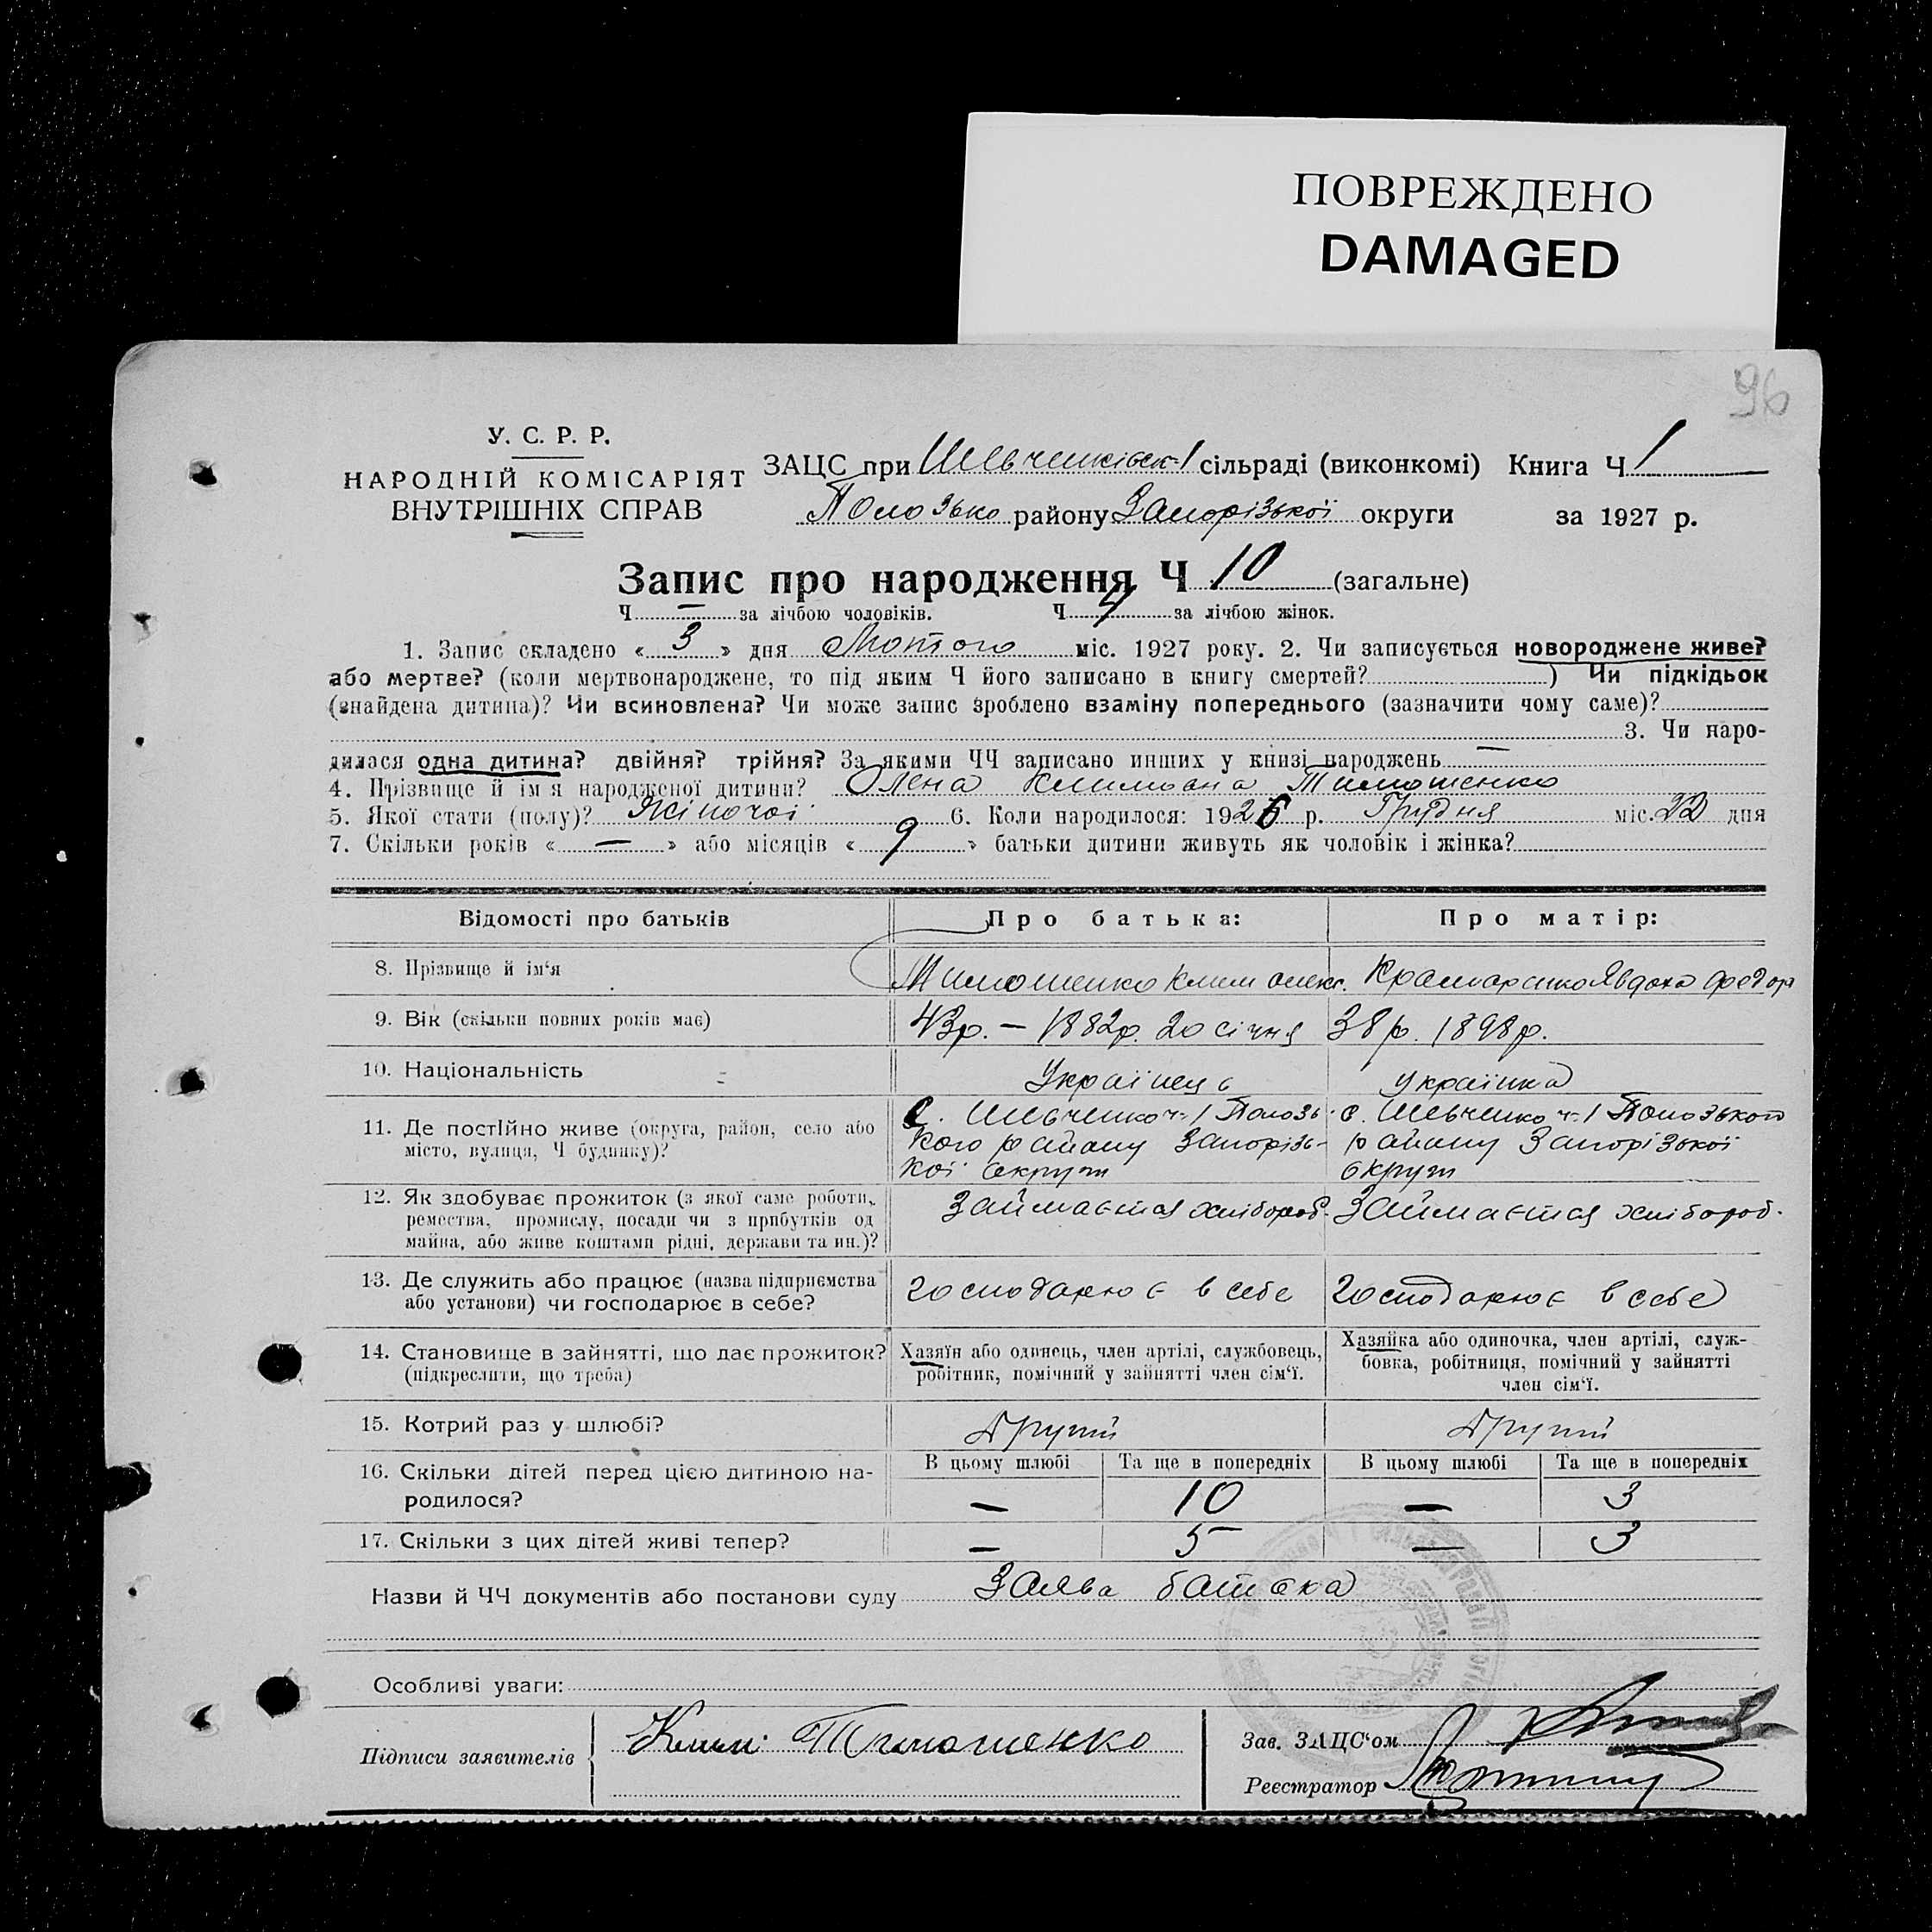 ПОВРЕЖДЕНО
DAMAGED
96
У. С. Р. Р.
НАРОДНІЙ КОМІСАРІЯТ
ВНУТРІШНІХ СПРАВ
ЗАЦС при Шевченківск-1 сільраді (виконкомі) Книга Ч 1
Полозько району Запорізькоі округи за 1927 р.
Запис про народження Ч 10 (загальне)
Ч — за лічбою чоловіків. Ч 4 за лічбою жінок.
1. Запис складено « 3 » дня Лютого міс. 1927 року. 2. Чи записується новороджене живе?
або мертве? (коли мертвонароджене, то під яким Ч його записано в книгу смертей? ) Чи підкідьок
(знайдена дитина)? Чи всиновлена? Чи може запис зроблено взаміну попереднього (зазначити чому саме)?
3. Чи наро-
дилася одна дитина? двійня? трійня? За якими ЧЧ записано инших у книзі народжень —
4. Прізвище й ім'я народженої дитини? Олена Климовна Тимошенко
5. Якої стати (полу)? Жіночоі 6. Коли народилося: 1926 р. Грудня міс. 22 дня
7. Скільки років « — » або місяців « 9 » батьки дитини живуть як чоловік і жінка?
Відомості про батьків Про батька: Про матір:
8. Прізвище й ім'я Тимошенко Клим олекс. Крамаренко Явдоха Федор
9. Вік (скільки повних років має) 43р. — 1882р. 20 січня 38р. 1898р.
10. Національність Українець українка
11. Де постІйно живе (округа, район, село або
місто, вулиця, Ч будинку)?
с. Шевченко ч-1 Полозь-
кого району Запорізь-
коі округи
с. Шевченко ч-1 Полозького
району Запорізькоі
округи
12. Як здобуває прожиток (з якої саме роботи,
ремества, промислу, посади чи з прибутків од
майна, або живе коштами рідні, держави та ин.)?
Займається хлібороб. Займається хлібороб.
13. Де служить або працює (назва підприємства
або установи) чи господарює в себе?
господарює в себе господарює в себе
14. Становище в зайнятті, що дає прожиток?
(підкреслити, що треба)
Хазяїн або одинець, член артілі, службовець,
робітник, помічний у зайнятті член сім'ї.
Хазяйка або одиночка, член артілі, служ-
бовка, робітниця, помічний у зайнятті
член сім'ї.
15. Котрий раз у шлюбі? Другий Другий
16. Скільки дітей перед цією дитиною на-
родилося?
В цьому шлюбі Та ще в попередніх В цьому шлюбі Та ще в попередніх
— 10 — 3
17. Скільки з цих дітей живі тепер? — 5 — 3
Назви й ЧЧ документів або постанови суду Заява батька
Особливі уваги:
Підписи заявителів Клим Тимошенко
Зав. ЗАЦС'ом
Реєстратор